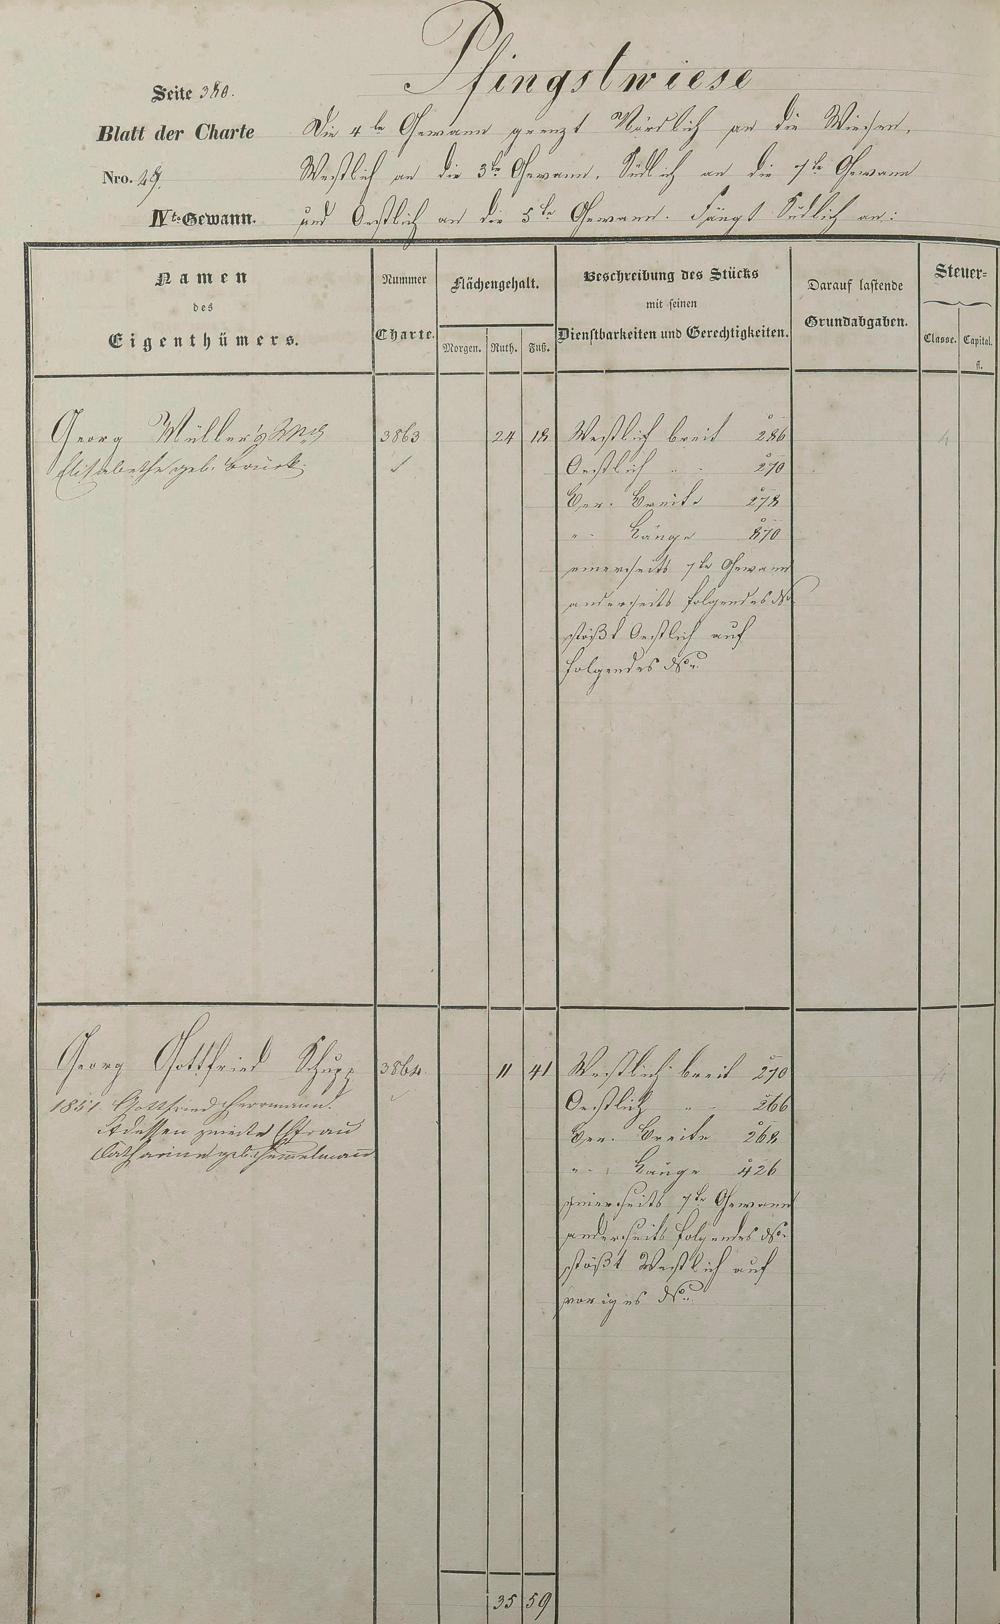 Pfingstwiese
Seite 380.
Blatt der Charte
Nro. 29.
IVte Gewann.
Die 4te Gewann grenzt Nördlich an die Wiesen,
Westlich an die 3te Gewann, Südlich an die 7te Gewann
und Oestlich an die 5te Gewann. Fängt Südlich an:
Namen
des
Eigenthümers.
Nummer
Charte.
Flächengehalt.
Morgen. Ruth. Fuß.
Beschreibung des Stücks
mit seinen
Dienstbarkeiten und Gerechtigkeiten.
Darauf lastende
Grundabgaben.
Steuer-
Classe. Capital.
fl.
Georg Müller's
Elisabethe geb. Brück.
3863
24 18
4
Westlich breit 286
Oestlich " " 270
Ber. Breite 278
" Länge 870
einerseits 7te Gewann
anderseits folgendes ds
stößt Oestlich auf
folgendes ds
Georg Gottfried Schupp
1851 Gottfried Herrmann.
dessen zweite Ehfrau
Catharine geb. Hemmelmann
3864
11 41
4
Westlich breit 270
Oestlich " " 266
Ber. Breite 268
" Länge 426
einerseits 7te Gewann
anderseits folgendes ds
stößt Westlich auf
voriges ds
35 59